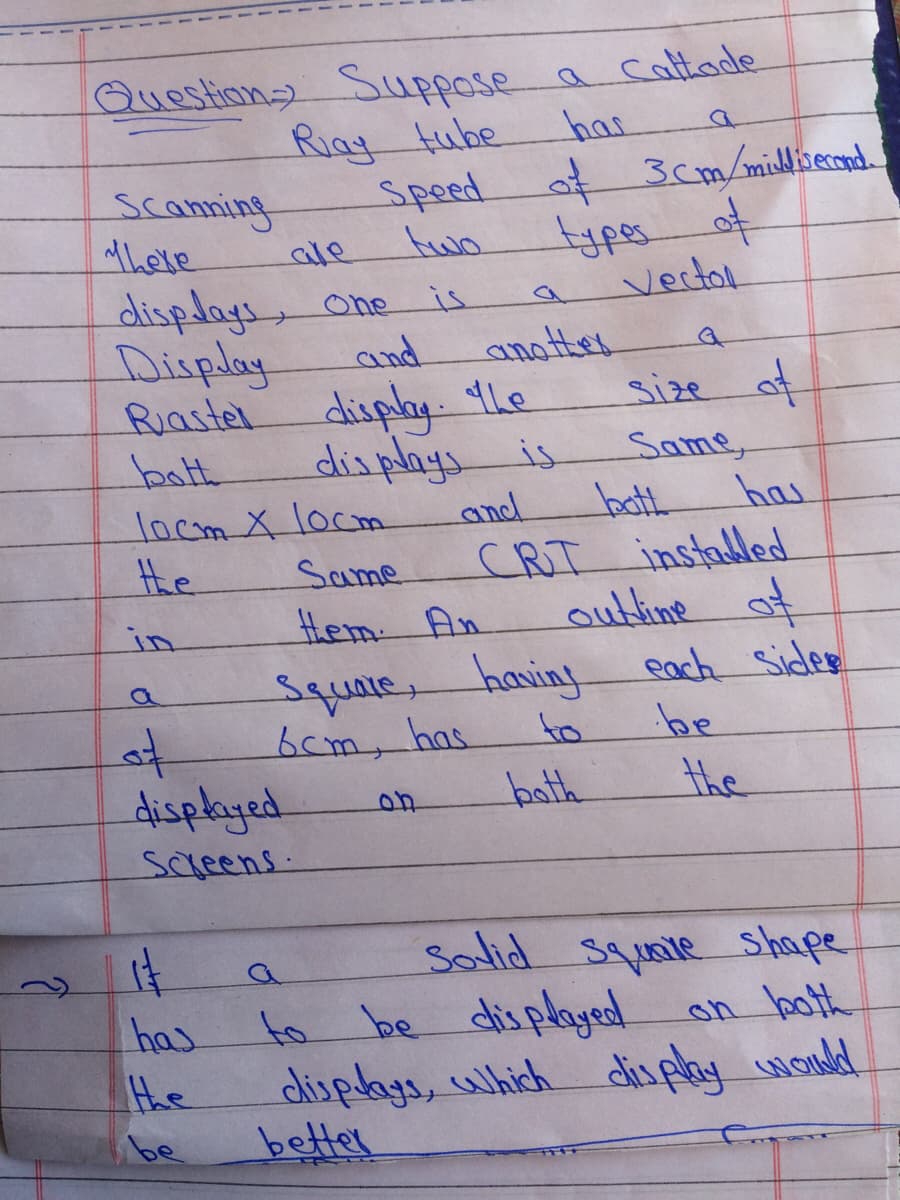 Question=> Suppose a Cathode
Ray tube has a
Scanning Speed of 3cm/millisecond.
There are two types of
displays, one is a vector
Display and another a
Raster display. The size of
both displays is Same,
10cm X 10cm and both has
the Same CRT installed
in them. An outline of
a Square, having each sides
of 6cm, has to be
displayed on both the
Screens.
=> If a Solid Square Shape
has to be displayed on both
the displays, which display would
be better